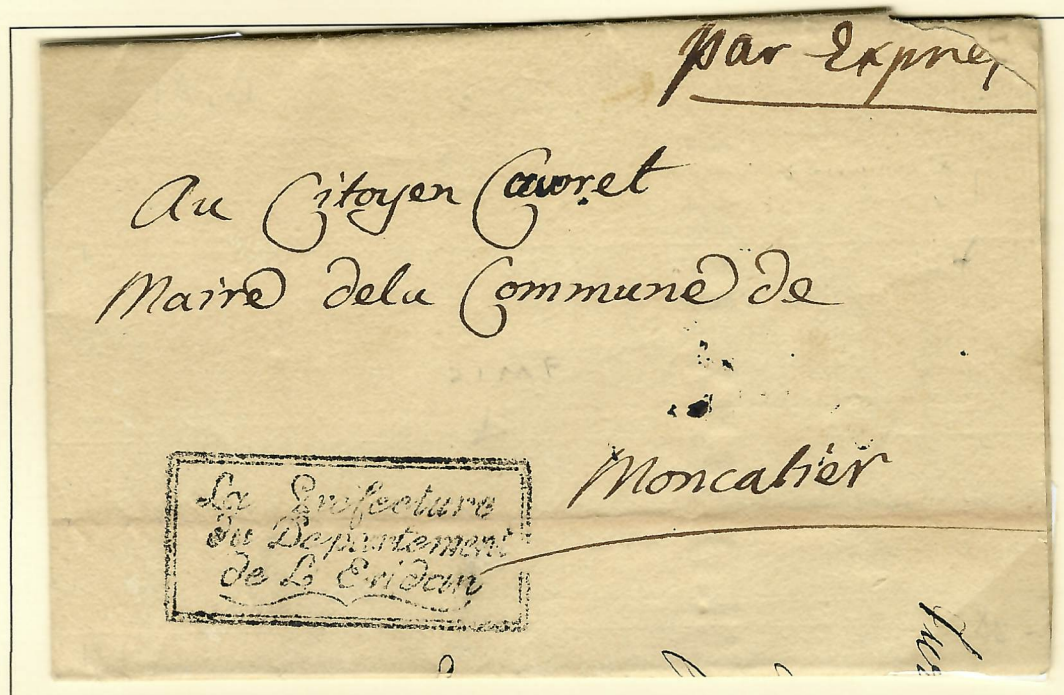 par Expres
Au Citoyen Cavoret
Maire dela Commune de
Moncalier
La Prefecture
du Departement
de L Eridan